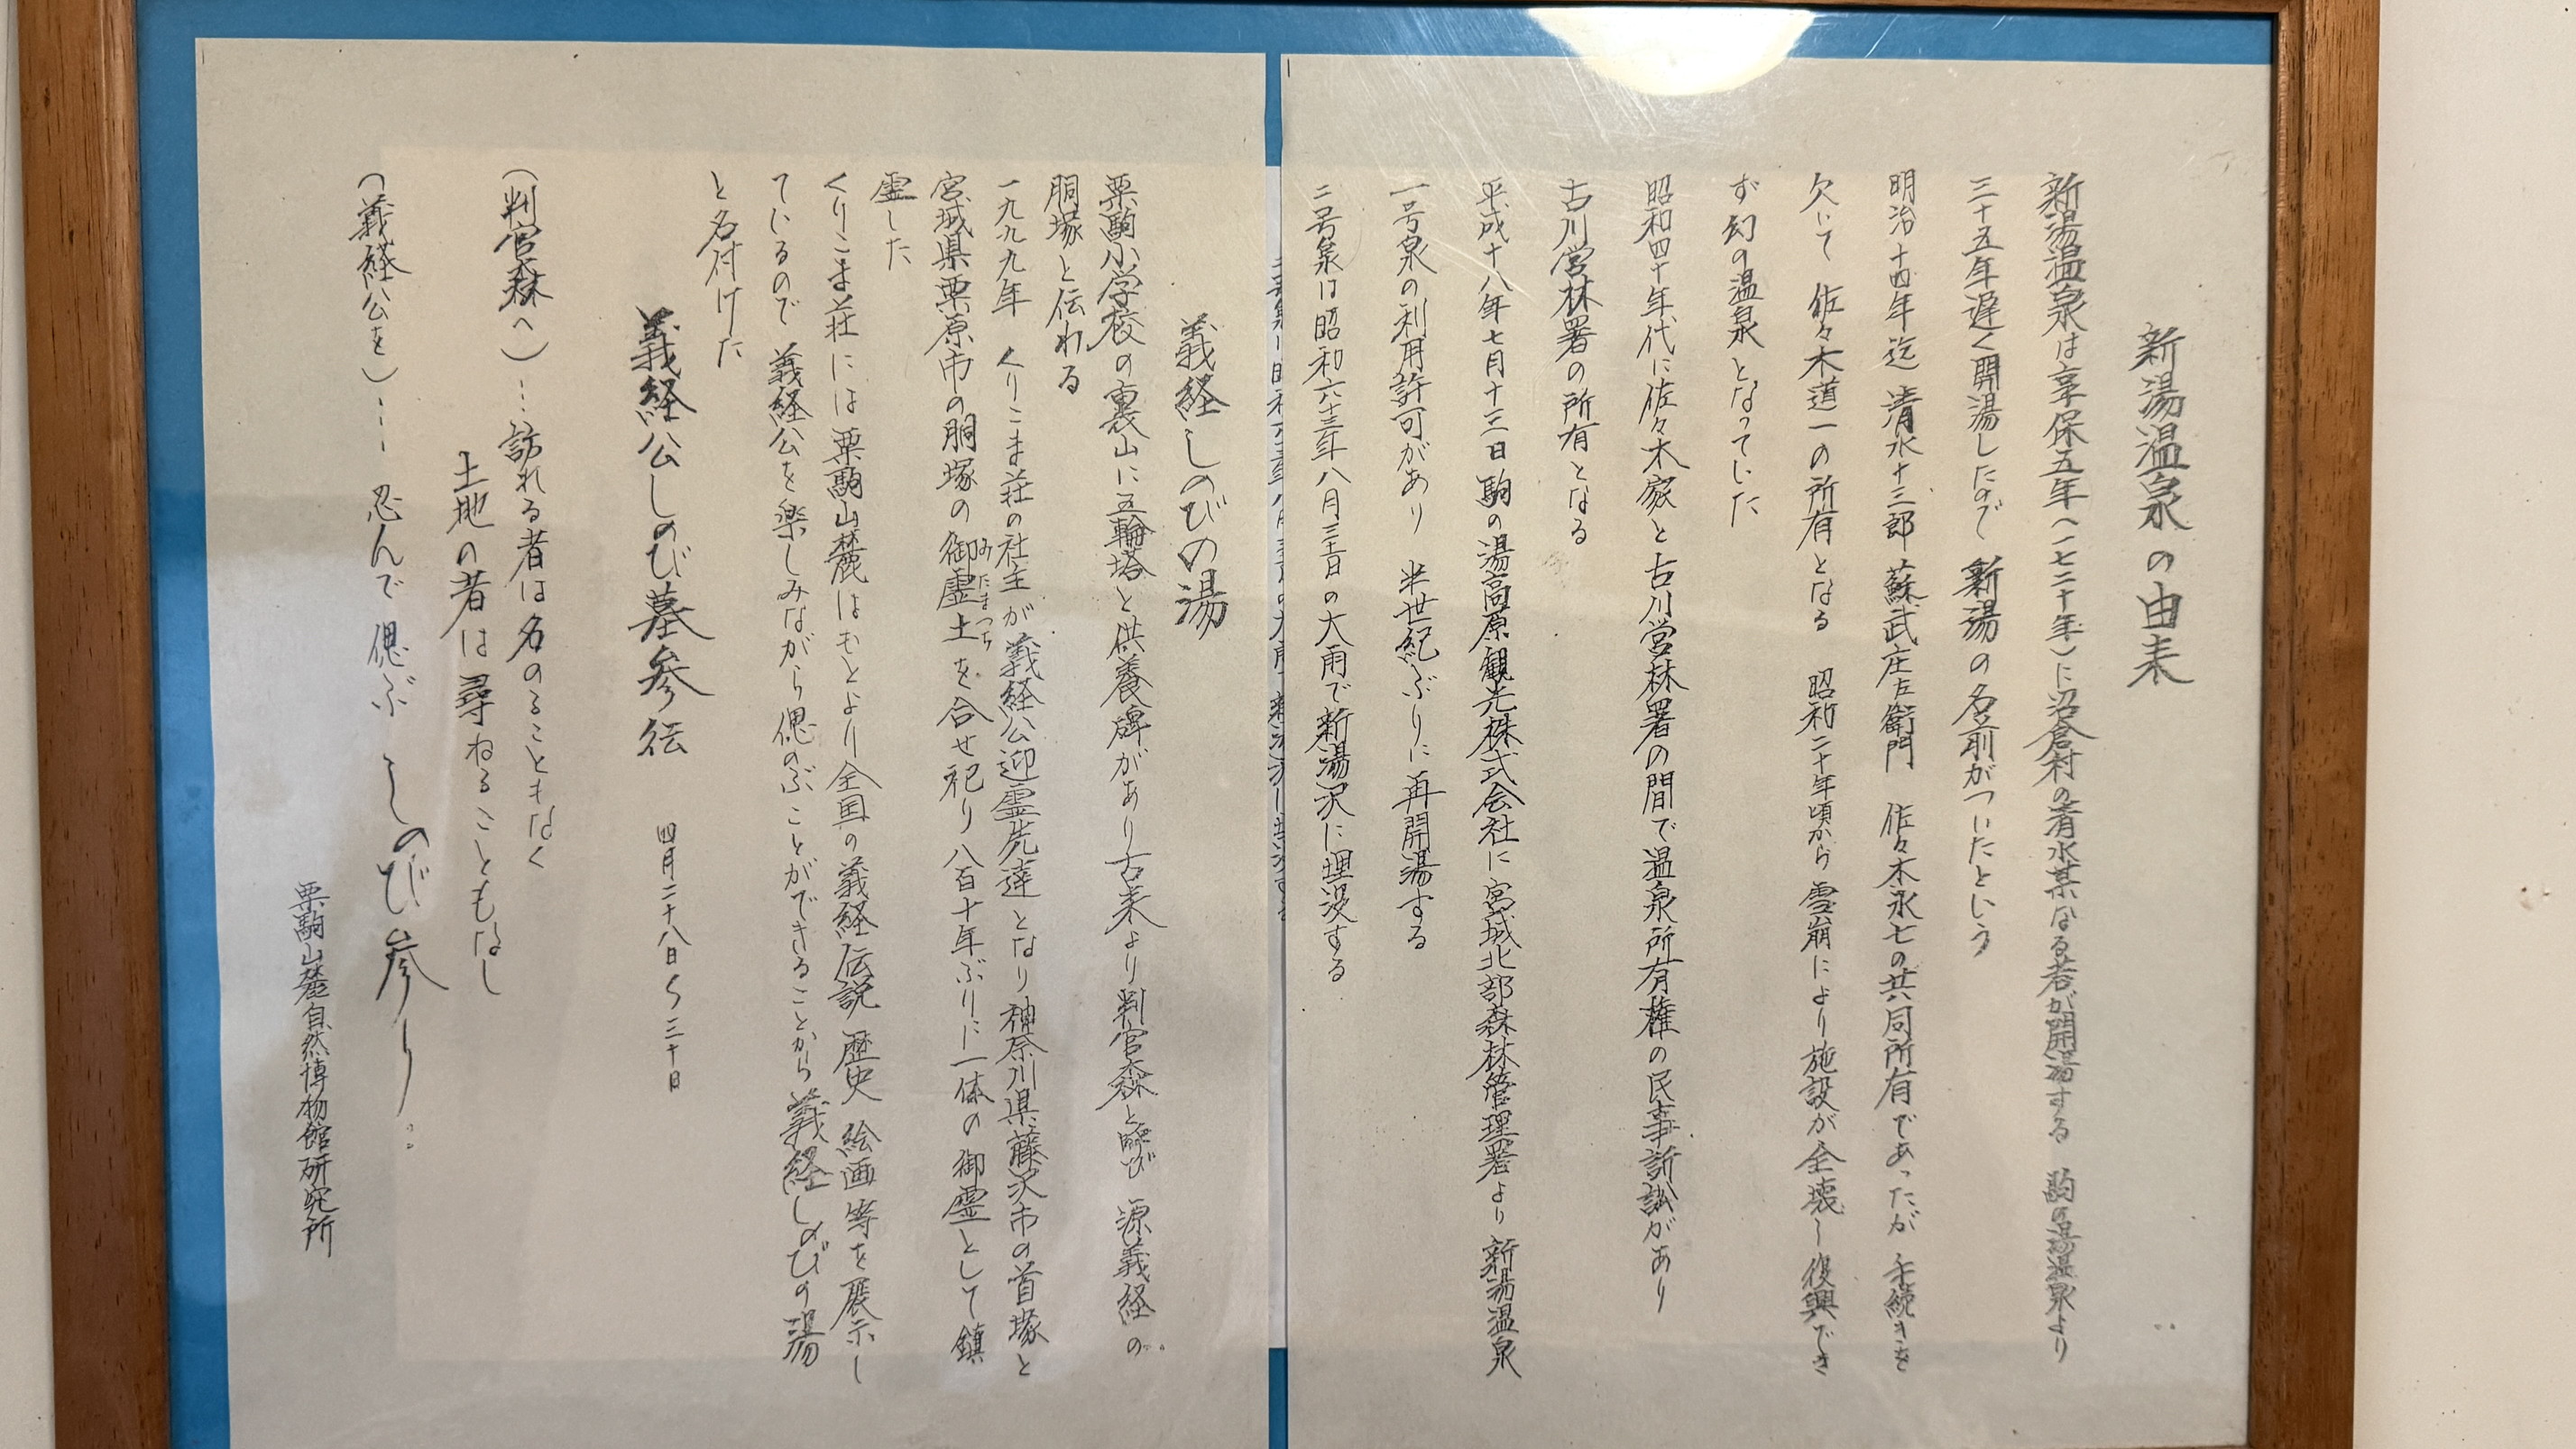 新湯温泉の由来
新湯温泉は享保五年(一七二十年)に沼倉村の清水某なる者が開湯する 駒の湯温泉より
三十五年遅く開湯したので 新湯の名前がついたという
明治十四年迄 清水十三郎 蘇武庄左衛門 佐々木永七の共同所有であったが 手続きを
欠いて 佐々木道一の所有となる 昭和二十年頃から雪崩により施設が全壊し復興でき
ず幻の温泉となっていた
昭和四十年代に佐々木家と古川営林署の間で温泉所有権の民事訴訟があり
古川営林署の所有となる
平成十八年七月十三日 駒の湯高原観光株式会社に宮城北部森林管理署より 新湯温泉
一号泉の利用許可があり 半世紀ぶりに再開湯する
二号泉は昭和六十三年八月三十日の大雨で新湯沢に埋没する
義経しのびの湯
栗駒小学校の裏山に五輪塔と供養碑があり古来より判官森と呼び 源義経の
胴塚と伝わる
一九九九年 くりこま荘の社主が義経公迎霊先達となり神奈川県藤沢市の首塚と
宮城県栗原市の胴塚の御霊土みたまつちを合せ祀り八百十年ぶりに一体の御霊として鎮
霊した
くりこま荘には栗駒山麓はもとより全国の義経伝説 歴史 絵画等を展示し
ているので 義経公を楽しみながら偲のぶことができることから義経しのびの湯
と名付けた
義経公しのび墓参伝 四月二十八日〜三十日
(判官森へ)…訪れる者は名のることもなく
土地の者は尋ねることもなし
(義経公を)… 忍んで偲ぶ しのび参り…
栗駒山麓自然博物館研究所